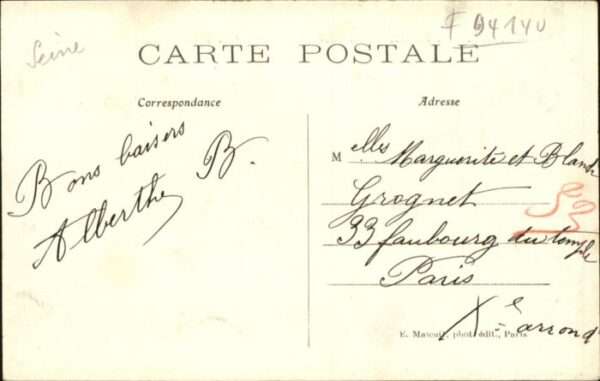 Seine
F 94140
CARTE POSTALE
Correspondance
Adresse
Bons baisers
Alberthe B.
Melles Marguerite et Blanche
Grognet
33 faubourg du temple
33
Paris
Xe arrond
E. Mateuil, phot. édit., Paris